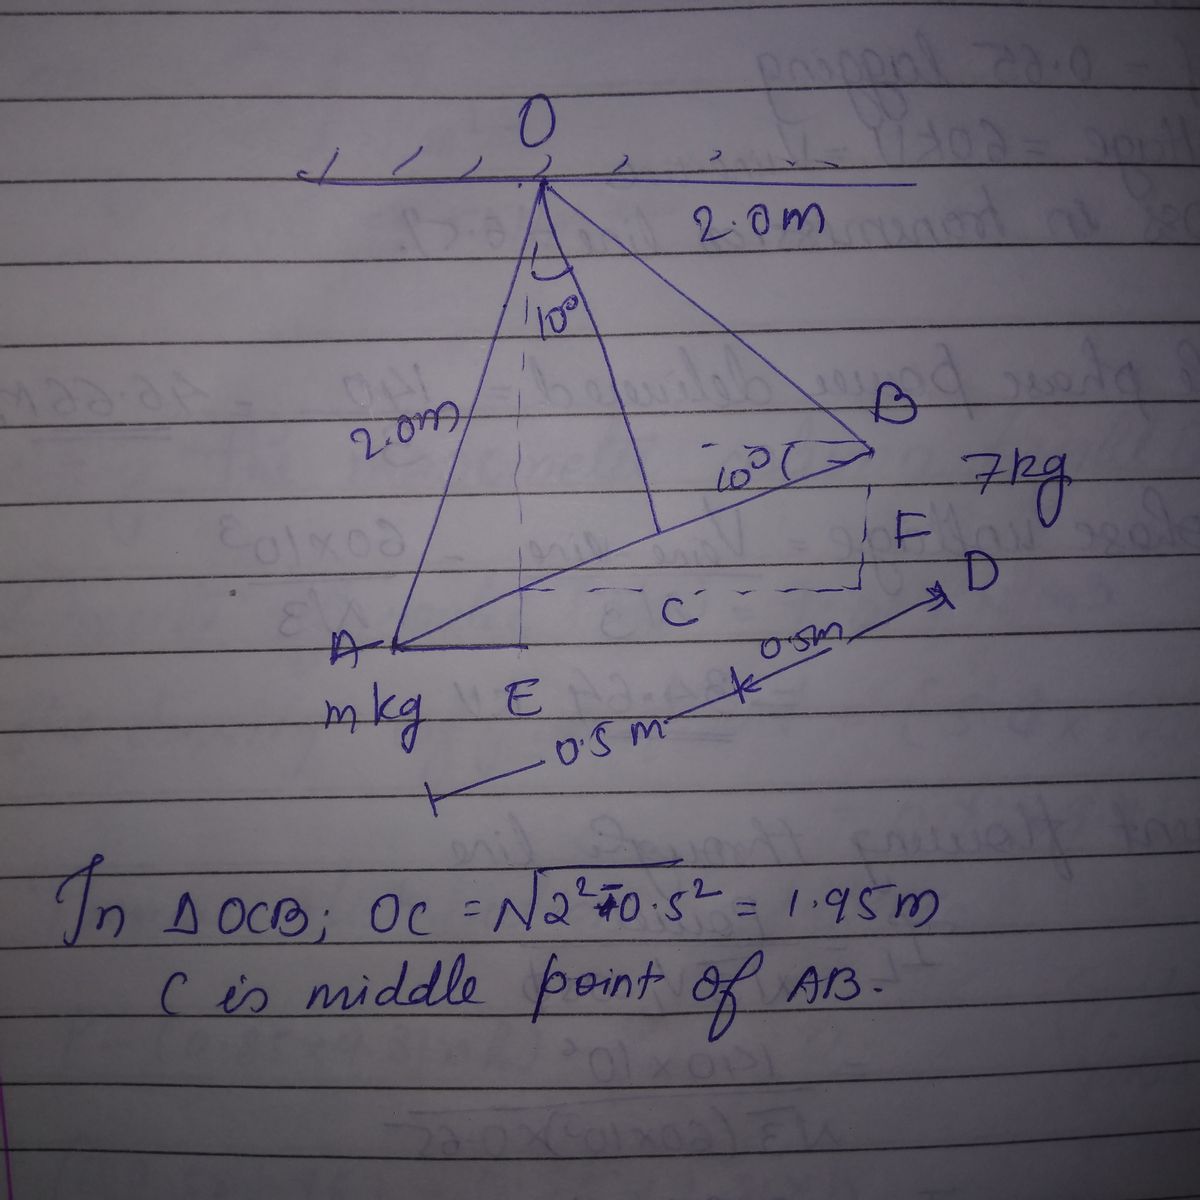 O
2.0m
10°
2.0m
B
10°
7kg
F
D
C
A
0.5m
m kg
E
0.5 m
In ΔOCB; OC = √2²-0.5² = 1.95m
C is middle point of AB.